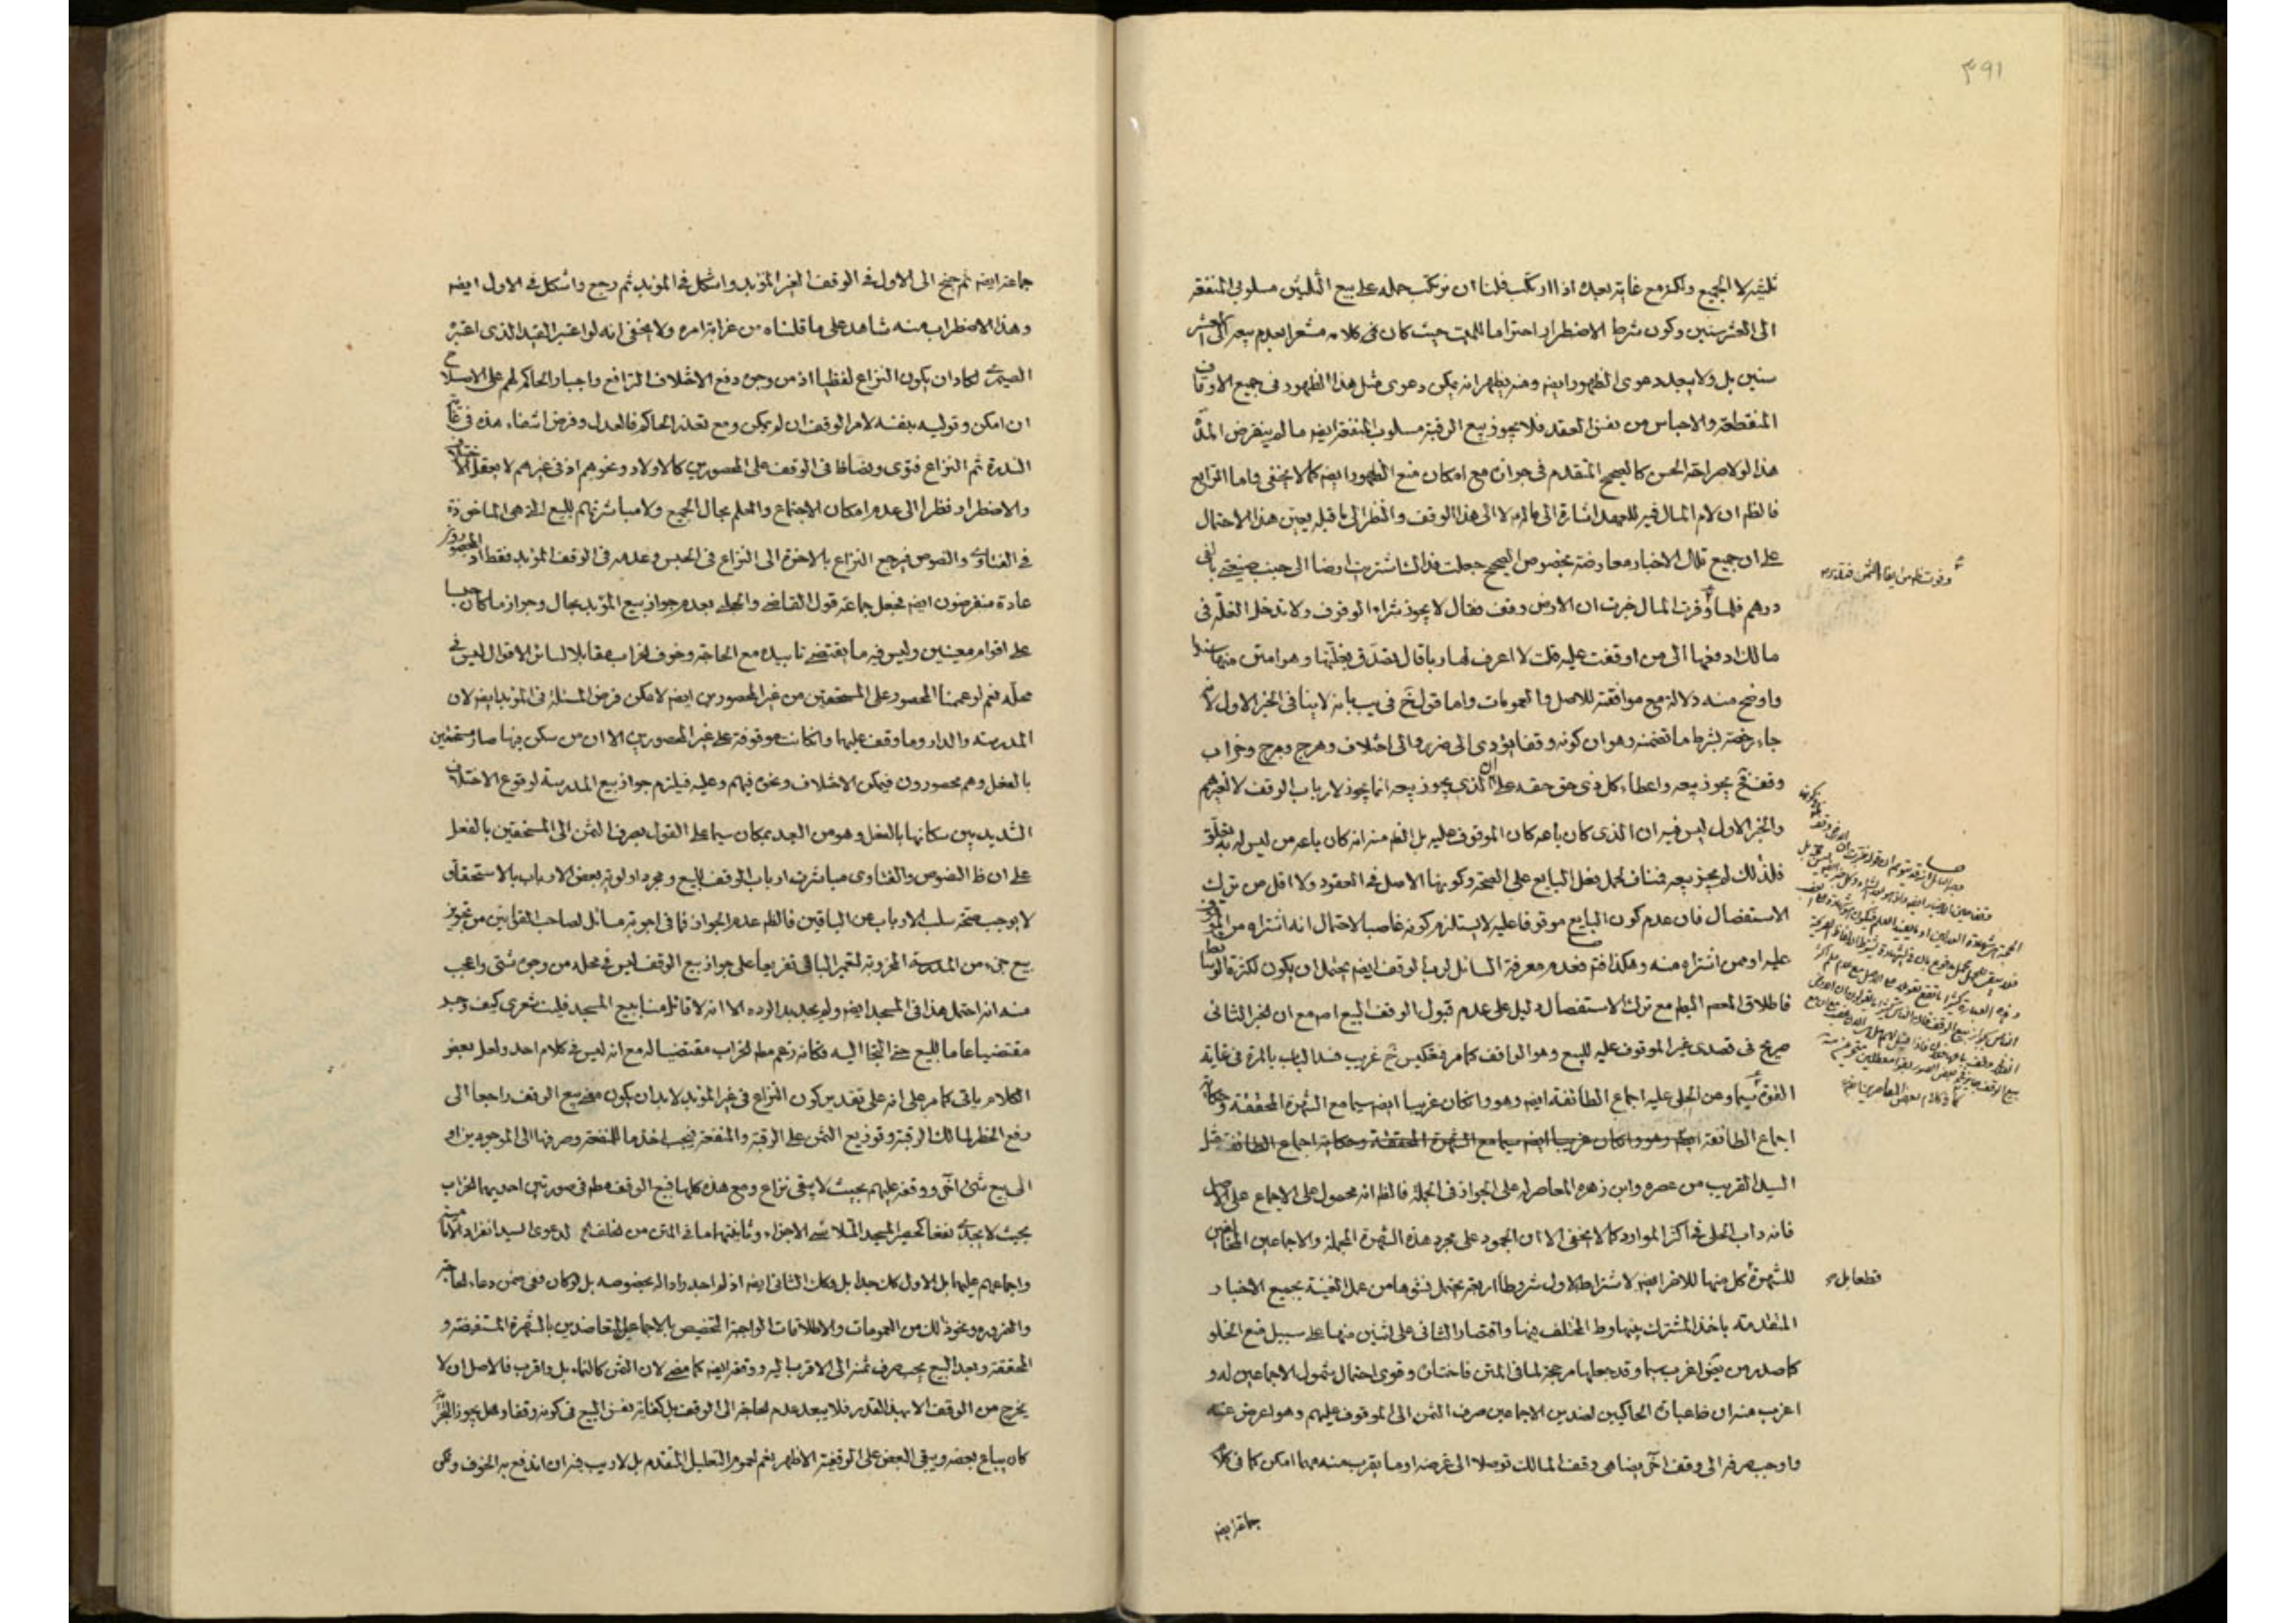 ٣٩١
ثلثيه لا الجميع ولكنه مع غاية بعده اذا ارتكب فلنا ان نرتكب حمله على بيع الثلثين مسلوبى المنفعة
الى العشر سنين وكون شرط الاضطرار احتراما للميت حيث كان فى كلامه مشعرا بعدم بيعه الى العشر
سنين بل ولا يبعد دعوى الظهور ايضه ومنه يظهر انه يمكن دعوى مثل هذا الظهور فى جميع الاوقاف
المنقطعة والاحباس من نفس العقد فلا يجوز بيع الرقبة مسلوب المنفعة ايضه ما لم ينقرض المدة
هذا لولا صراحة الحسن كالصحيح المتقدم فى جوازه مع امكان منع الظهور ايضه كما لا يخفى واما الرابع
فالظم ان لام المال فيه للعهد اشارة الى ماله لا الى هذا الوقف والنظر الى ما قبله يعين هذا الاحتمال
على ان جميع تلك الاخبار معارضة بخصوص الصحيح جعلت فداك اشتريت ارضا الى جنب ضيعتى بالفى
درهم فلما وفرت المال خبرت ان الارض وقف فقال لا يجوز شراء الوقوف ولا تدخل الغلة فى
مالك ادفعها الى من اوقفت عليه قلت لا اعرف لها ربا قال تصدق بغلتها وهو امتن منها سندا
واوضح منه دلالة مع موافقته للاصل والعمومات واما قول خ فى يب بانه لا ينافى الخبر الاول لانه
جاء رخصة بشرط ما تضمنه وهو ان كونه وقفا يؤدى الى ضرر والى اختلاف وهرج ومرج وخراب
وقف فح يجوز بيعه واعطاء كل ذى حق حقه على ان الذى يجوز بيعه انما يجوز لارباب الوقف لا لغيرهم
والخبر الاول ليس فيه ان الذى كان باعه كان الموقوف عليه بل الظم منه انه كان باعه من ليس له به تعلق
فلذلك لم يجز بيعه فمناف لحمل فعل البايع على الصحة وكونها الاصل فى العقود ولا اقل من ترك
الاستفصال فان عدم كون البايع موقوفا عليه لا يستلزم كونه غاصبا لاحتمال انه اشتراه من الموقوف
عليه او ممن اشتراه منه وهكذا فتم فعدم معرفة السائل لربا لوقف ايضه يحتمل ان يكون لكثرة الوسايط
فاطلاق المعصم البطم مع ترك الاستفصال دليل على عدم قبول الوقف البيع اصم مع ان الخبر الثانى
صريح فى تصدى غير الموقوف عليه للبيع وهو الواقف كما مر فعكس خ غريب فسد الباب بالمرة فى غاية
القوة سيما وعن الحلى عليه اجماع الطائفة ايضه وهو وان كان غريبا ايضه سيما مع الشهرة المحققة وحكاية
اجماع الطائفة ايضه وهو وان كان غريبا ايضه سيما مع الشهرة المحققة وحكاية اجماع الطائفة مثل
السيد القريب من عصره وابن زهره المعاصر له على الجواز فى الجملة فالظم انه محمول على الاجماع على الاصل
فانه داب الحلى فى اكثر الموارد كما لا يخفى الا ان الجمود على مجرد هذه الشهرة المجملة والاجماعين المخالفين
للشهرة كل منهما للاخر ايضه لاشتراط الاول شروطا اربعة يحتمل نشوها من عمل الغنية بجميع الاخبار
المتقدمة باخذ المشترك بينها وط المختلف فيها واقتصار الثانى على اثنين منها على سبيل منع الخلو
كما صدر من يحيى اغرب سيما وقد جعلها مرجحة لما فى المتن فاختاره وقوى احتمال شمول الاجماعين له و
اغرب منه ان ظ عبارة الحاكيين لهذين الاجماعين صرف الثمن الى الموقوف عليهم وهو اعرض عنه
واوجب صرفه الى وقف اخر يضاهى وقف المالك توصلا الى غرضه او ما يقرب منه مهما امكن كما فى كلام
جماعة ايضه
وفوت ظم من ايفاء الثمن فتدبر
قطعا بل
جماعة ايضه ثم جنح الى الاول فى الوقف الغير المؤبد واشكل فى المؤبد ثم رجع واشكل فى الاول ايضه
وهذا الاضطراب منه شاهد على ما قلناه من غرابة امره ولا يخفى انه لو اعتبر القيد الذى اعتبره
الصيمرى لكاد ان يكون النزاع لفظيا اذ من وجوه دفع الاختلاف الترافع واجبار الحاكم لهم على الاصلاح
ان امكن وتوليه بنفسه لامر الوقف ان لم يمكن ومع تعذر الحاكم فالعدل وفرض انتفاء هذه فى غاية
الندرة ثم النزاع فتوى ونصا ظ فى الوقف على المحصورين كالاولاد ونحوهم اذ فى غيرهم لا يعقل الاختلاف
والاضطرار نظرا الى عدم امكان الاجتماع والعلم بحال الجميع ولا مباشرتهم للبيع التى هى الماخوذة
فى الفتاوى والنصوص فيرجع النزاع بالاخرة الى النزاع فى الحبس وعدمه فى الوقف المؤبد فقط اذ المحصورون
عادة منقرضون ايضه فجعل جماعة قول القاضى والحلبى بعدم جواز بيع المؤبد بحال وجواز ما كان حبسا
على اقوام معينين وليس فيه ما يقتضى تابيده مع الحاجة وخوف الخراب مقابلا لسائر الاقوال ليس فى
محله نعم لو عممنا المحصور على المستحقين من غير المحصورين ايضه لامكن فرض المسئلة فى المؤبد ايضه لان
المدرسة والدار وما وقف عليها وان كانت موقوفة على غير المحصورين الا ان من سكن فيها صار مستحقين
بالفعل وهم محصورون فيمكن الاختلاف ونحوه فيهم وعليه فيلزم جواز بيع المدرسة لوقوع الاختلاف
الشديد بين سكانها بالفعل وهو من البعد بمكان سيما على القول بصرف الثمن الى المستحقين بالفعل
على ان ظ النصوص والفتاوى مباشرة ارباب الوقف للبيع ومجرد اولوية بعض الارباب بالاستحقاق
لا يوجب صحة سلب الارباب من الباقين فالظم عدم الجواز فما فى اجوبة مسائل لصاحب القوانين من تجويز
بيع جزء من المدرسة المخروبة لتعمير الباقى تفريعا على جواز بيع الوقف ليس فى محله من وجوه شتى واعجب
منه انه احتمل هذا فى المسجد ايضه ولم يجد بدا لرده الا انه لا قائل منا ببيع المسجد فليت شعرى كيف وجد
مقتضيا عاما للبيع حتى التجا اليه فكانه زعم مطم الخراب مقتضيا له مع انه ليس فى كلام احد ولعل بعض
الكلام ياتى كما مر على انه على تقدير كون النزاع فى غير المؤبد لابد ان يكون معنى بيع الوقف راجعا الى
رفع الحظر لمالك الرقبة وتوزيع الثمن على الرقبة والمنفعة فيجب اخذ ما للمنفعة وصرفها الى الموجودين او
الى بيع شئ اخر ووقفه عليهم بحيث لا يبقى نزاع ومع هذه كلها فبيع الوقف مطم فى صورتين احديهما الخراب
بحيث لا يجدى نفعا كحصير المسجد المتلاشى الاجزاء وثانيتهما ما فى المتن من لدعوى السيد انفراد الامامية
واجماعهم عليهما بل الاول كان جدا بل وكان الثانى ايضه اذ لم اجد رادا له بخصوصه بل لو كان ففى ضمن دعاء لحاجة
والضرورة ونحو ذلك من العمومات والاطلاقات الواجبة التخصيص بالاجماعين المتعاضدين بالشهرة المستفيضة و
المحققة وبعد البيع يجب صرف ثمنه الى الاقرب اليه ووقفه ايضه كما مضى لان الثمن كالنماء بل واقرب فالاصل ان لا
يخرج من الوقف الا بهذا القدر فلا يبعد عدم لحاجة الى الوقف بل كفاية نفس البيع فى كونه وقفا وهل يجوز التجزية
كان يباع بعضه ويبقى البعض على الوقفية الاظهر نعم لعموم التعليل المتقدم بل لا ريب فيه ان اندفع به الخوف وعن